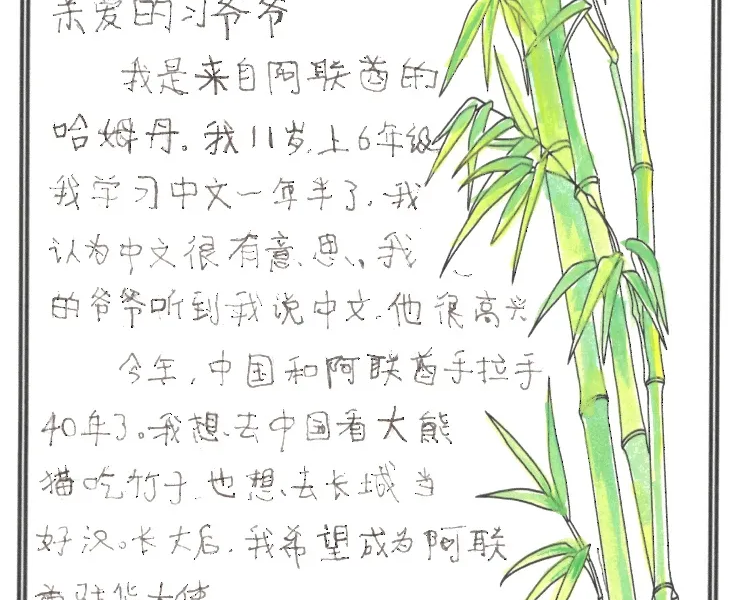 亲爱的习爷爷
我是来自阿联酋的
哈姆丹。我11岁,上6年级
我学习中文一年半了,我
认为中文很有意思,我
的爷爷听到我说中文,他很高兴
今年,中国和阿联酋手拉手
40年了。我想去中国看大熊
猫吃竹子,也想去长城当
好汉。长大后,我希望成为阿联
酋驻华大使